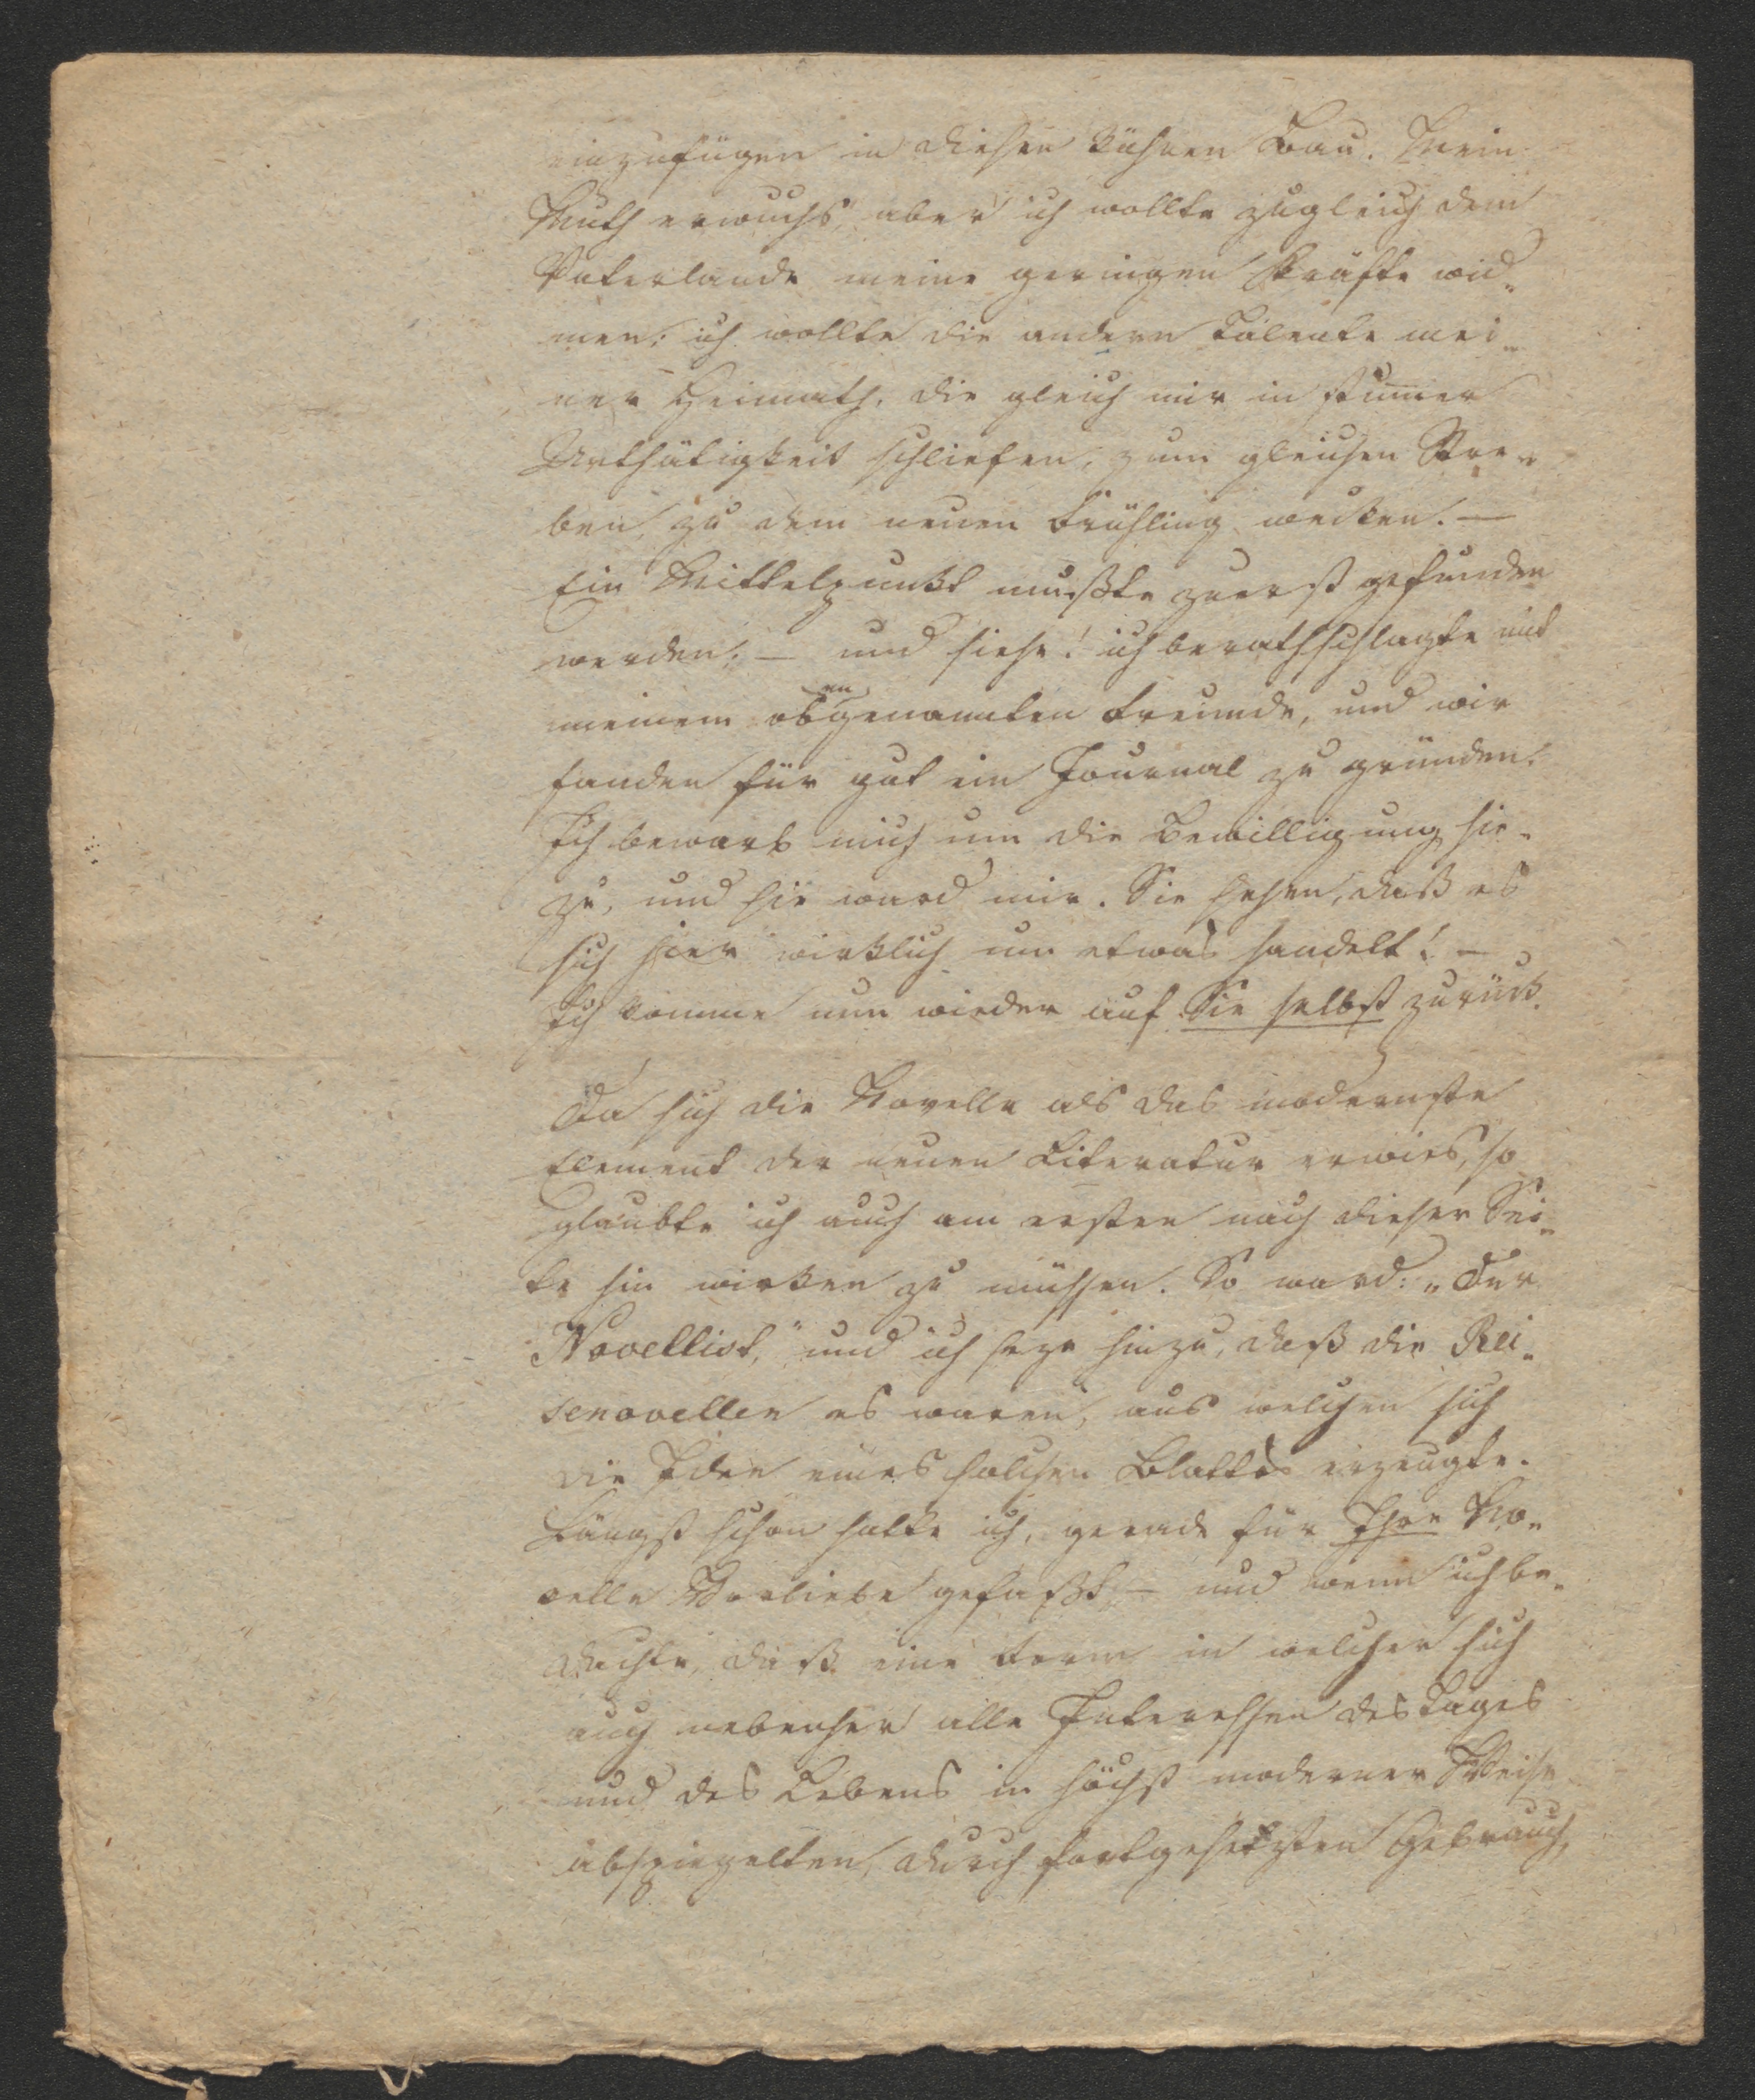 einzufügen in diesen kühnen Bau. Mein
Muth erwuchs, aber ich wollte zugleich dem
Vaterlande meine geringen Kräfte wid-
men; ich wollte die andern Talente mei-
ner Heimath, die gleich mir in stummer
Unthätigkeit schliefen, zum gleichen Stre-
ben, zu dem neuen Frühling wecken. —
Ein Mittelpunkt mußte zuerst gefunden
werden; — und siehe! ich berathschlagte mit
meinem obengenannten Freunde, und wir
fanden für gut ein Journal zu gründen.
Ich bewarb mich um die Bewilligung hie-
zu, und sie ward mir. Sie sehen, daß es
sich hier wirklich um etwas handelt! —
Ich komme nun wieder auf Sie selbst zurück.
Da sich die Novelle als das modernste
Element der neuen Literatur erwies, so
glaubte ich auch am ersten nach dieser Sei-
te hin wirken zu müssen. So ward: „Der
Novellist," und ich seze hinzu, daß die Rei-
senovellen es waren, aus welchen sich
die Idee eines solchen Blattes erzeugte.
Längst schon hatte ich, gerade für Ihre No-
velle Vorliebe gefaßt, — und wenn ich be-
dachte, daß eine Form in welcher sich
auch nebenher alle Interessen des Tages
und des Lebens in höchst moderner Weise
abspiegelten, durch fortgesetzten Gebrauch,